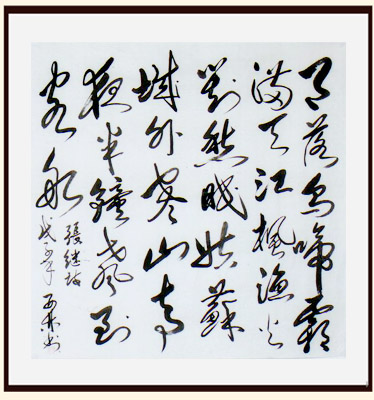 月落烏啼霜
滿天江楓漁火
對愁眠姑蘇
城外寒山寺
夜半鐘聲到
客船
張継
戊子年